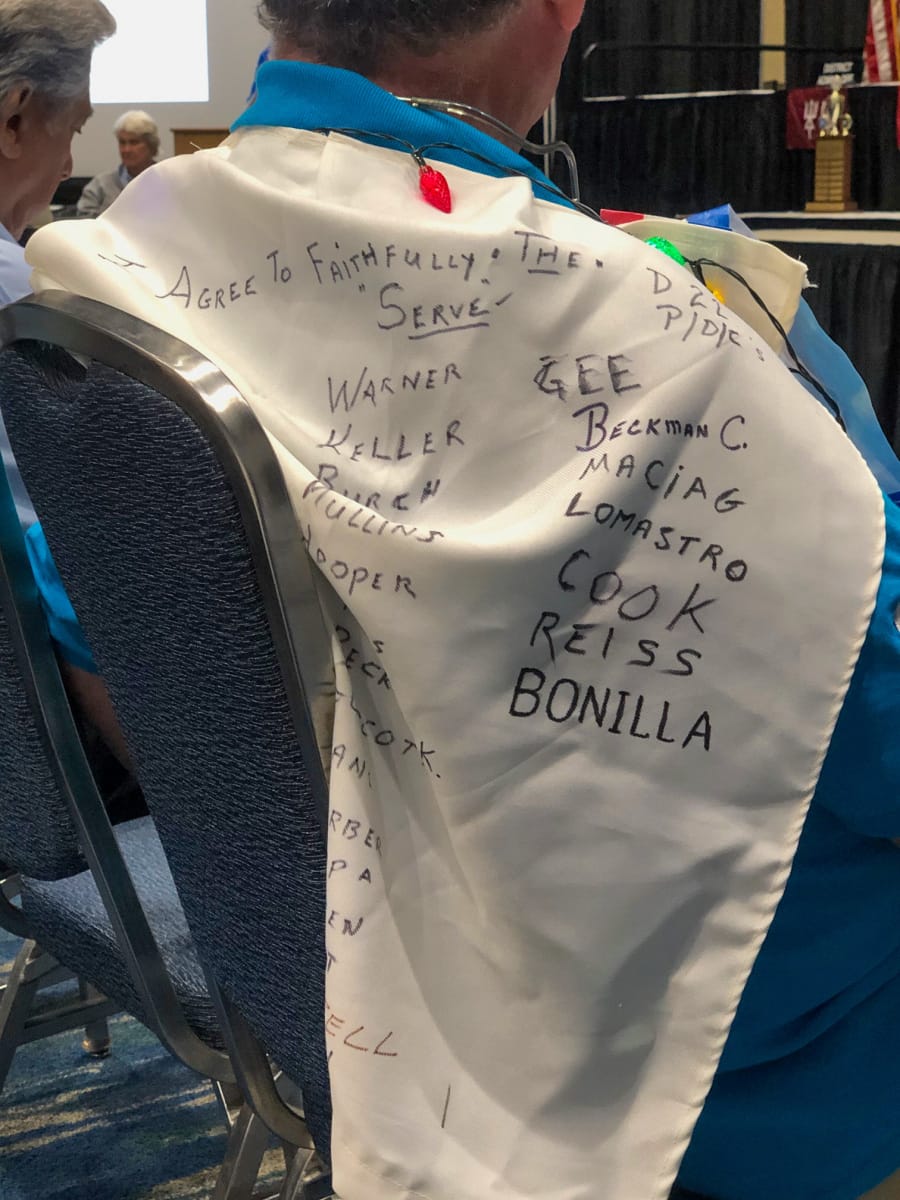 I AGREE TO FAITHFULLY. THE.
"SERVE"
D 22
P/D/C's
WARNER
KELLER
BURCH
MULLINS
OOPER
ECK
COTK.
AN
RBER
PA
EN
T
ELL
GEE
BECKMAN C.
MACiAG
LOMASTRO
COOK
REISS
BONILLA
DISTRICT